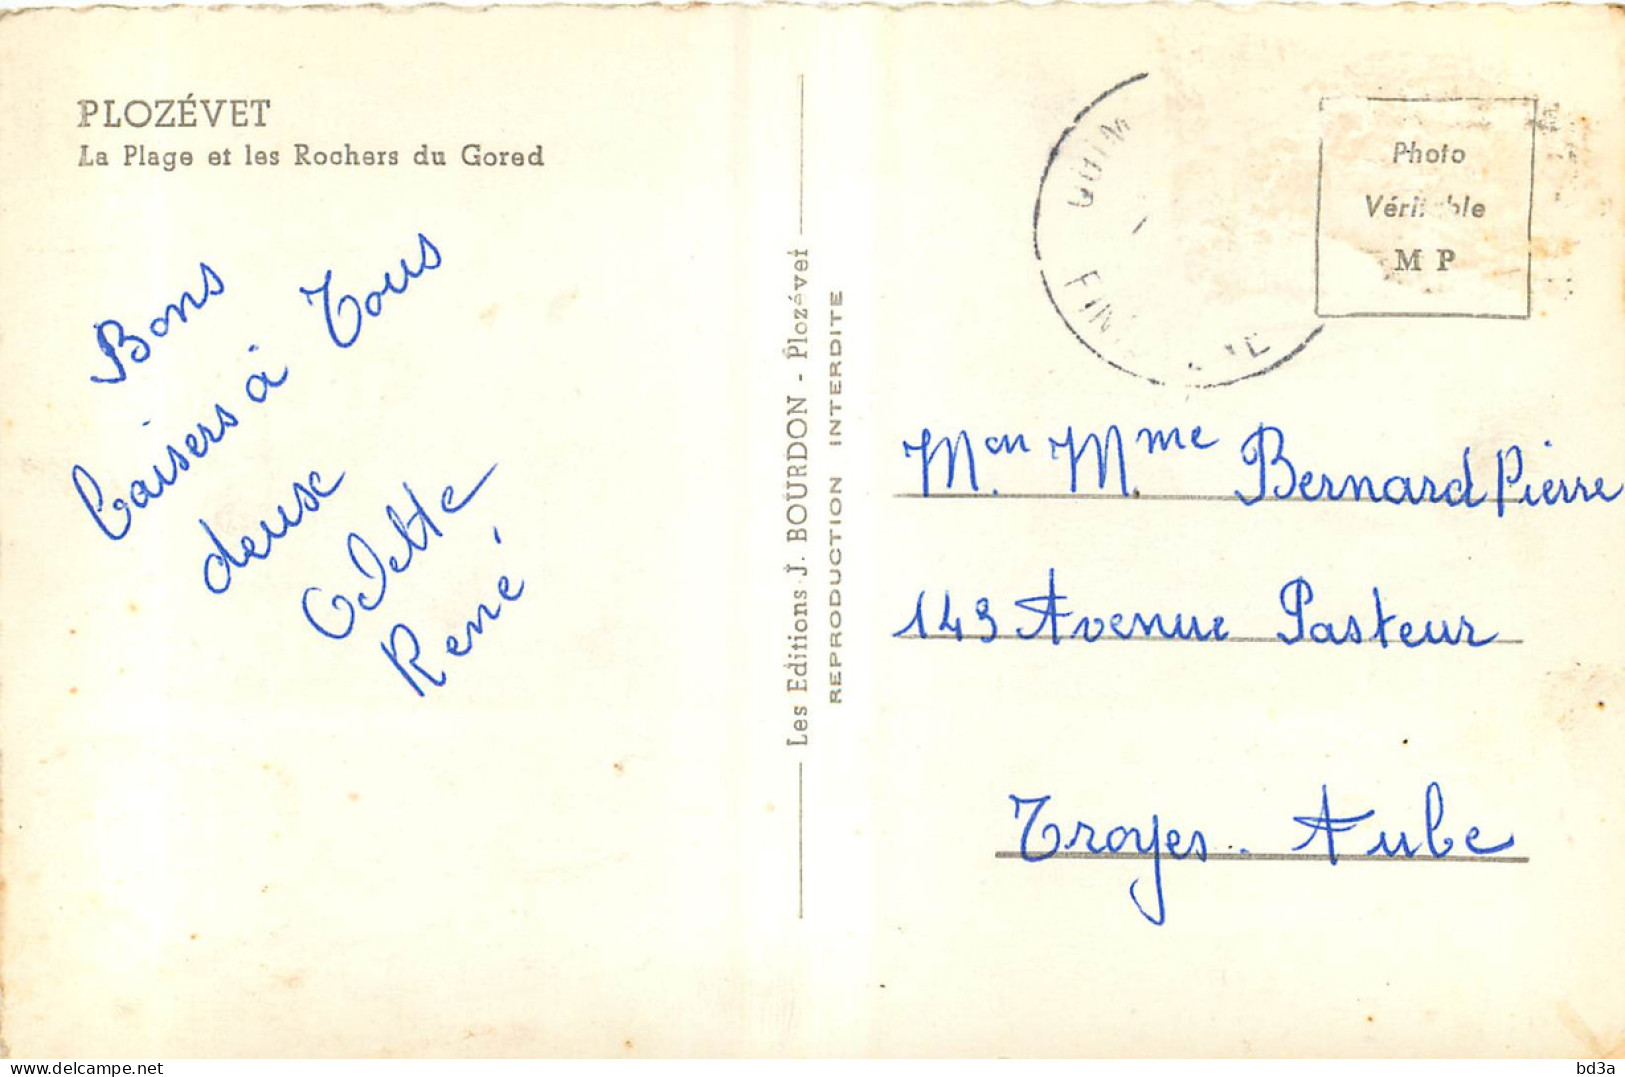 PLOZÉVET
La Plage et les Rochers du Gored
Bons
baisers à Tous
deux
Odette
René
Les Editions J. BOURDON - Plozévet
REPRODUCTION INTERDITE
QUIM
FIN
Photo
Véritable
M P
M. ou M.me Bernard Pierre
143 Avenue Pasteur
Troyes. Aube
www.delcampe.net
bd3a